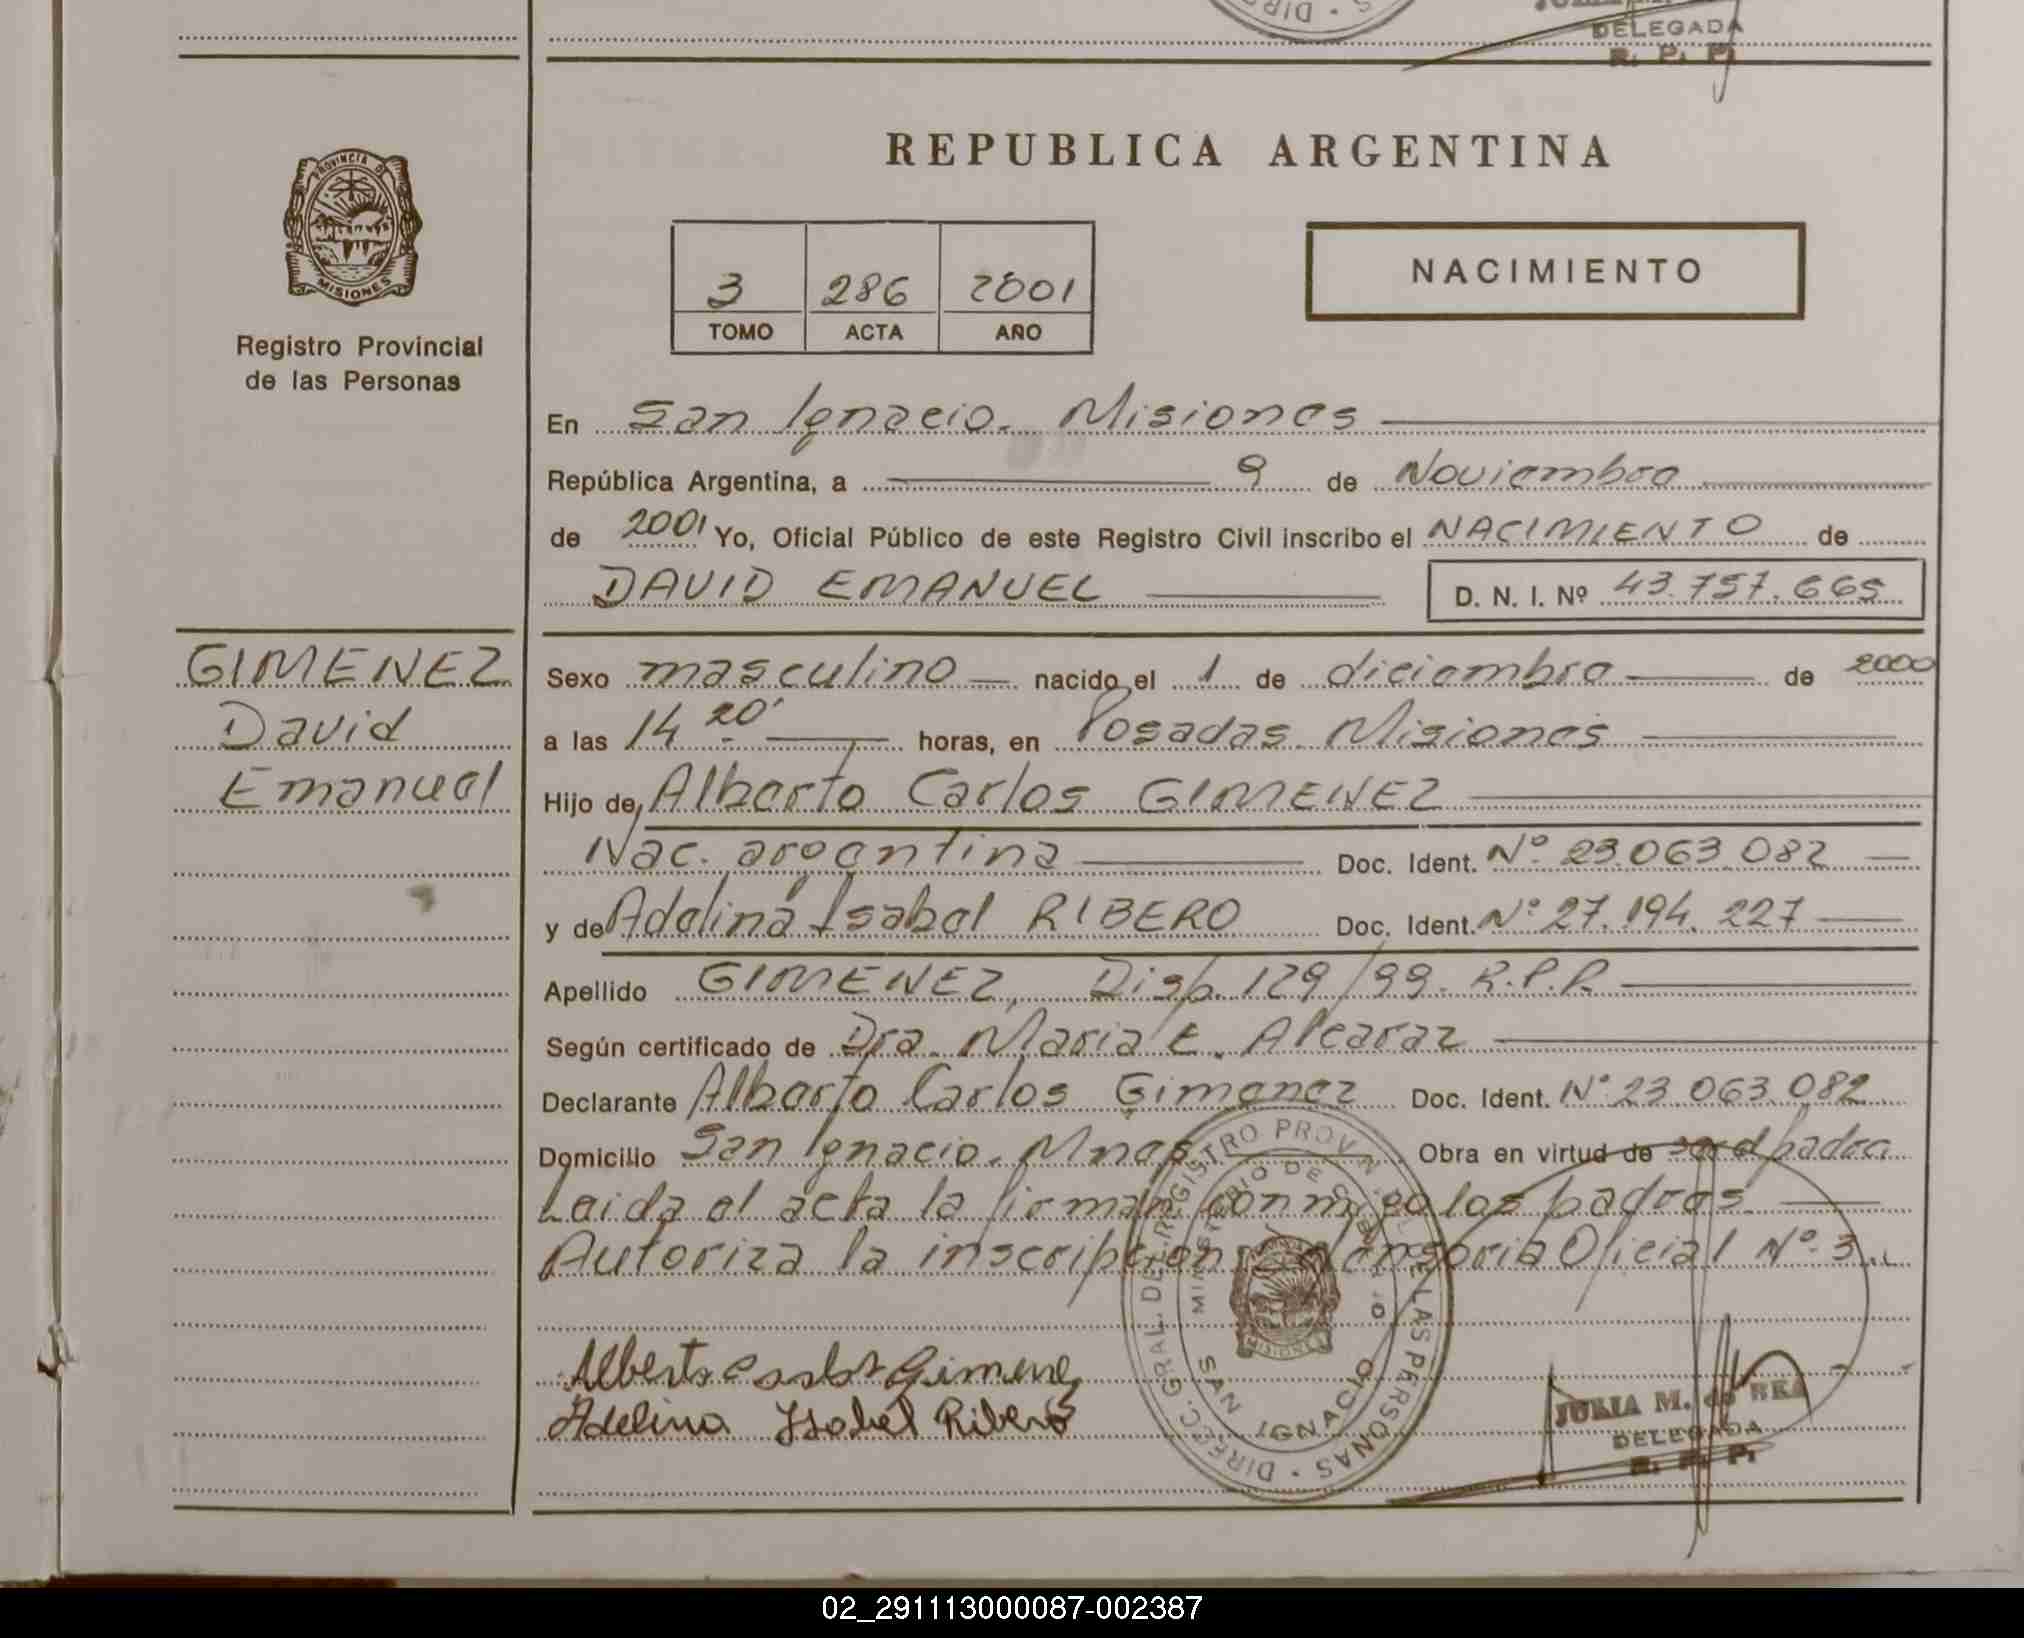 DELEGADA
R. P. P.
PROVINCIA DE
MISIONES
Registro Provincial
de las Personas
REPUBLICA ARGENTINA
3 286 2001
TOMO ACTA AÑO
NACIMIENTO
En San Ignacio. Misiones
República Argentina, a 9 de Noviembre
de 2001 Yo, Oficial Público de este Registro Civil inscribo el NACIMIENTO de
DAVID EMANUEL D. N. I. Nº 43.757.665
GIMENEZ
David
Emanuel
Sexo masculino nacido el 1 de diciembre de 2000
a las 14 20' horas, en Posadas Misiones
Hijo de Alberto Carlos GIMENEZ
Nac. argentina Doc. Ident. Nº 23.063.082
y de Adelina Isabel RIBERO Doc. Ident. Nº 27.194.227
Apellido GIMENEZ, Disp. 129/99. R.P.P.
Según certificado de Dra. Maria E. Alcaraz
Declarante Alberto Carlos Gimenez Doc. Ident. Nº 23 063 082
Domicilio San Ignacio. Mnes Obra en virtud de ser el padre
Leida el acta la firman conmigo los padres
Autoriza la inscripcion Asesoria Oficial Nº 3
Alberto Carlos Gimenez
Adelina Ysabel Ribero
DIREC. GRAL. DEL REGISTRO PROV. DE LAS PERSONAS
MINISTERIO DE GOBIERNO
MISIONES
SAN IGNACIO
JULIA M. de
DELEGADA
R. P. P.
02_291113000087-002387